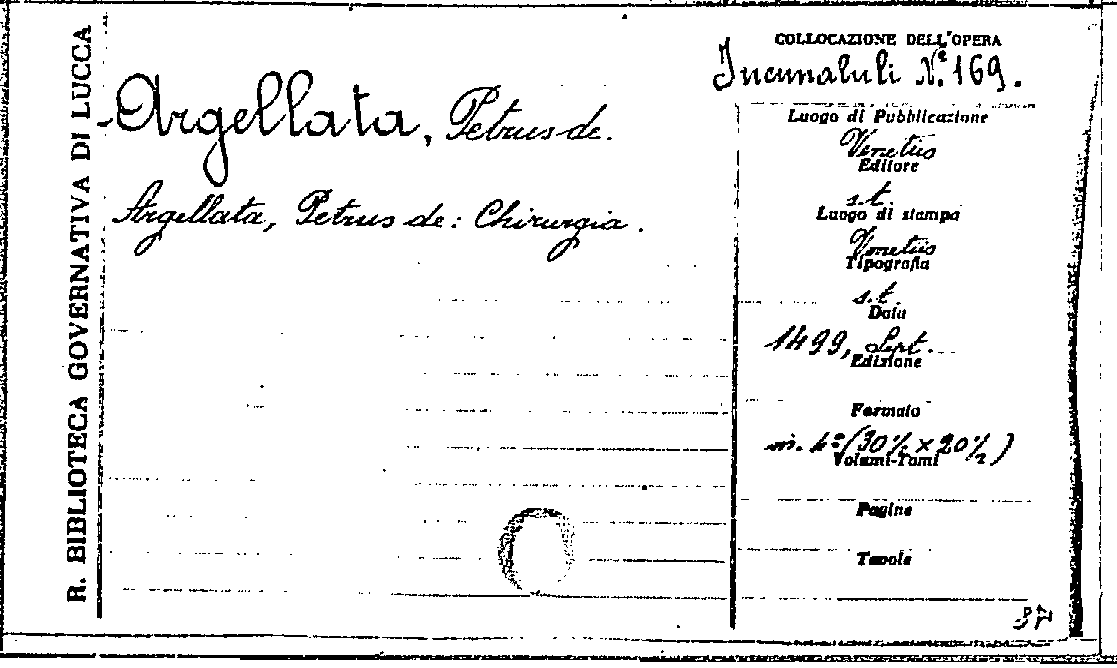 R. BIBLIOTECA GOVERNATIVA DI LUCCA
Argellata, Petrus de.
Argellata, Petrus de: Chirurgia.
COLLOCAZIONE DELL'OPERA
Incunabuli N.º 169.
Luogo di Pubblicazione
Venetus
Editore
s.t.
Luogo di stampa
Venetus
Tipografia
s.t.
Data
1499, Sept.
Edizione
Formato
in. 4º (30½ × 20½)
Volumi-Tomi
Pagine
Tavole